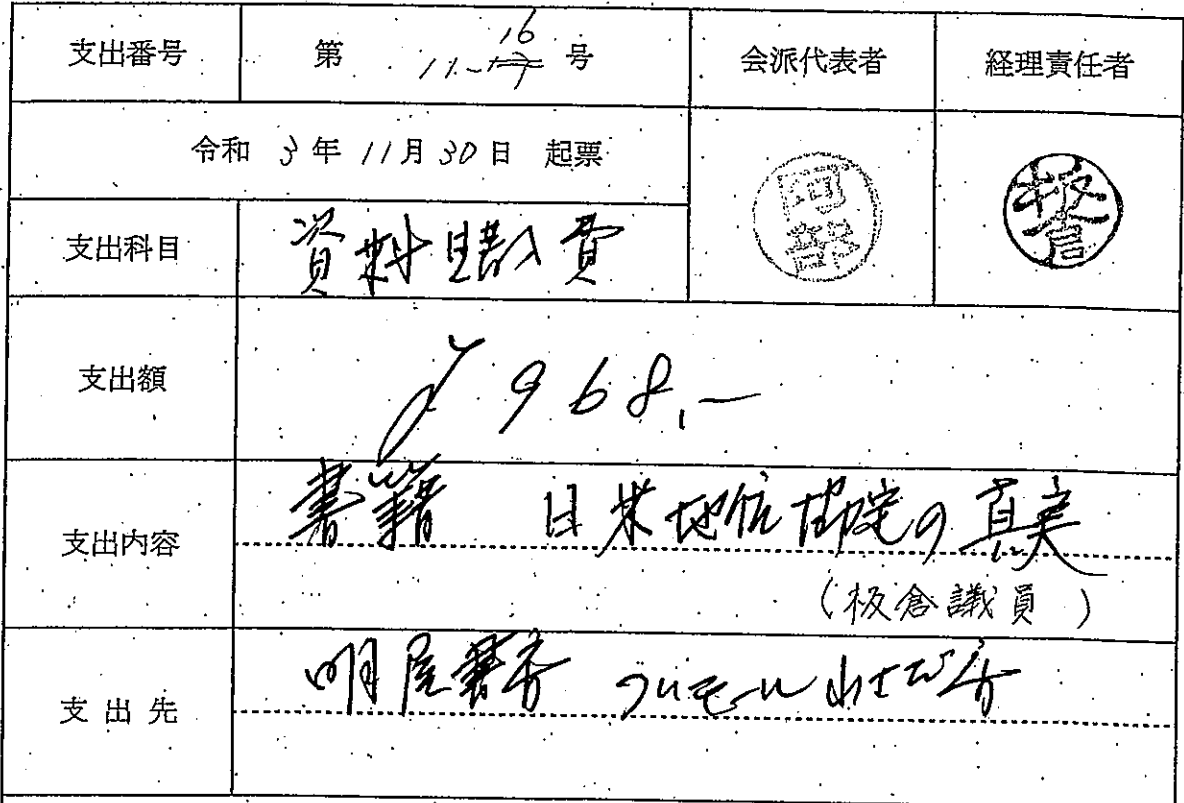 支出番号 第 11-16 号 会派代表者 経理責任者
令和 3年 11月 30日 起票
阿部
板倉
支出科目 資料購入費
支出額 ¥968.-
支出内容 書籍 日米地位協定の真実
(板倉議員)
支出先 明屋書店